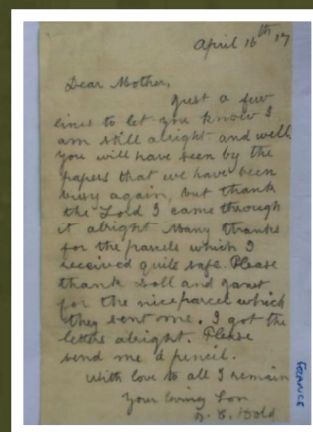 April 16th 17
Dear Mother,
Just a few
lines to let you know I
am still alright and well
you will have seen by the
papers that we have been
busy again, but thank
the Lord I came through
it alright Many thanks
for the parcels which I
received quite safe. Please
thank Doll and Janet
for the nice parcel which
they sent me. I got the
letters alright. Please
send me a pencil.
With love to all I remain
Your loving Son
Dold
FRANCE